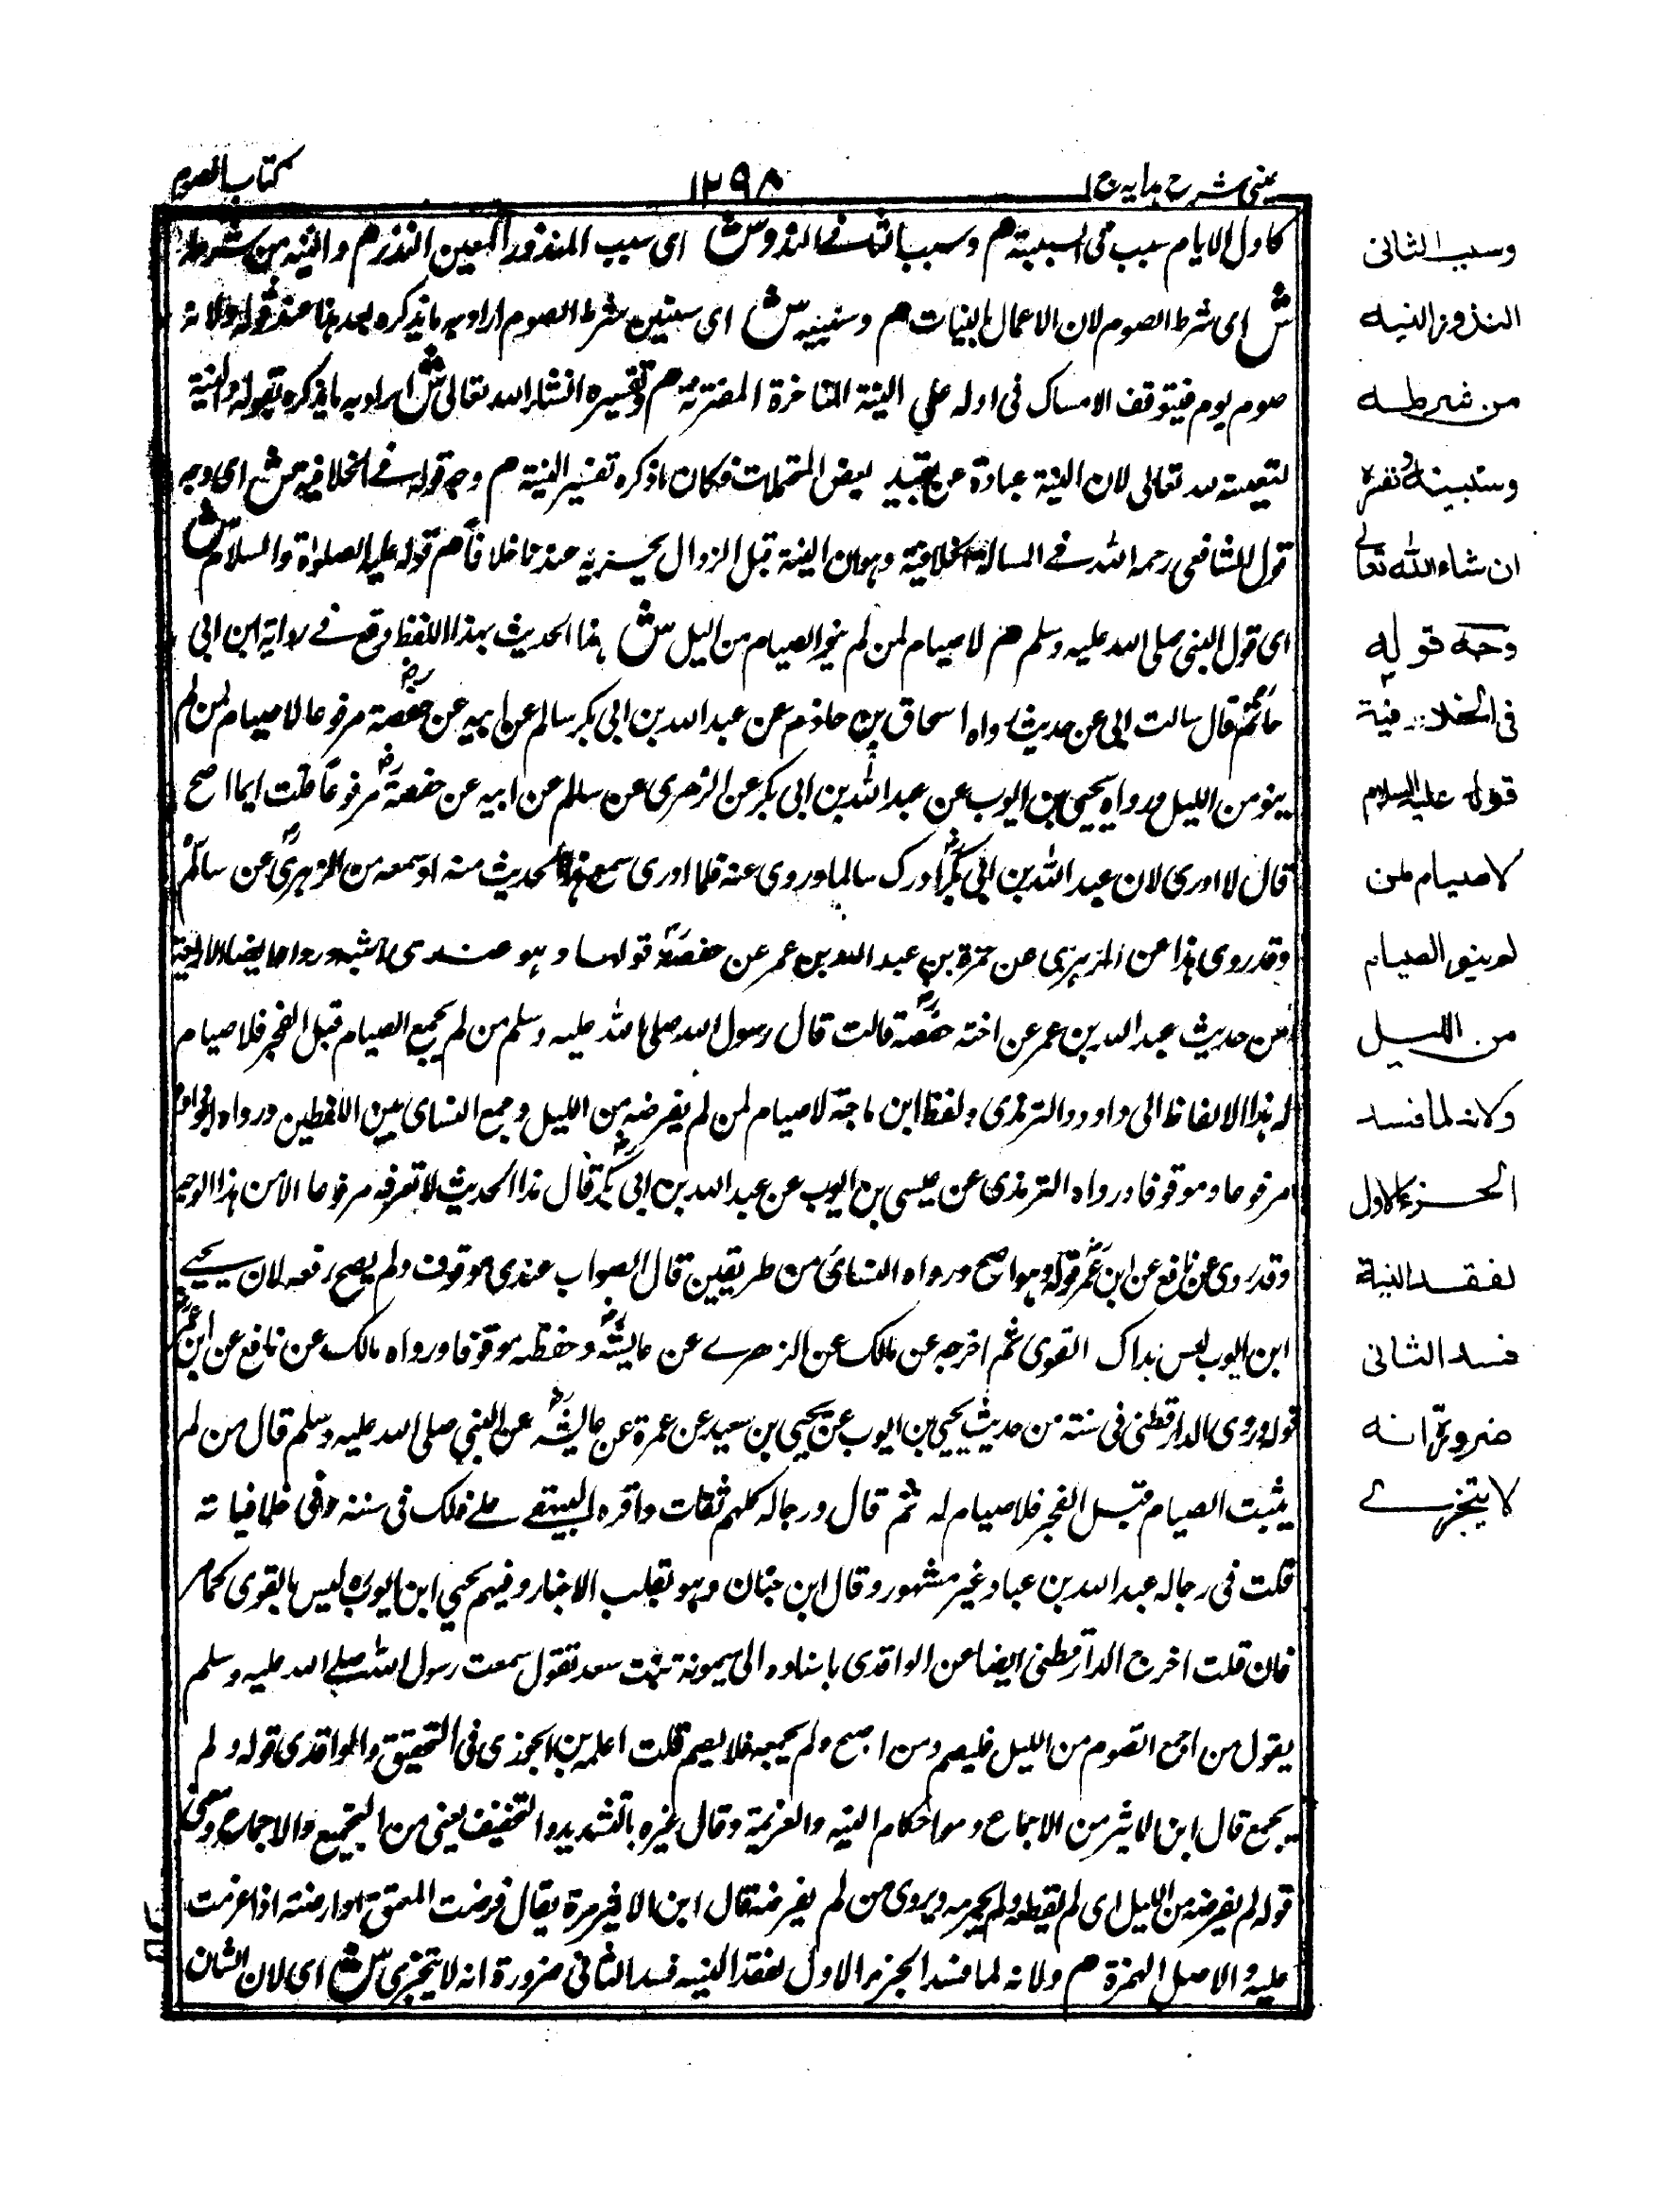 عینی شرح ہدایہ ج ا
١٢٩٨
کتاب الصوم
کاول الایام سبب فی السببیة م وسبب الثانی النذر ش ای سبب المنذور المعین النذر م والنیة من شرطہ
ش ای شرط الصوم لان الاعمال بالنیات م وسنبینہ ش ای سنبین شرط الصوم اراد بہ ما یذکرہ بعد ہذا عند قولہ ولانہ
صوم یوم فیتوقف الامساک فی اولہ علی النیة المتاخرة المقترنة م وتفسیرہ انشاء اللہ تعالی ش اراد بہ ما یذکرہ بقولہ والنیة
لتعیینہ للہ تعالی لان النیة عبارة عن بعض المحتملات فکان ما ذکرہ تفسیر النیة م وجہ قولہ فی الخلافیة ش ای وجہ
قول الشافعی رحمہ اللہ فی المسالة الخلافیة وہو ان النیة قبل الزوال یجزیہ عندنا خلافا م قولہ علیہ الصلواة والسلام ش
ای قول النبی صلی اللہ علیہ وسلم م لا صیام لمن لم ینو الصیام من الیل ش ہذا الحدیث بہذا اللفظ وقع فی روایة ابن ابی
حاتم قال سالت ابی عن حدیث رواہ اسحاق بن حازم عن عبد اللہ بن ابی بکر سالم عن ابیہ عن حفصة مرفوعا لا صیام لمن لم
ینو من اللیل ورواہ یحیی بن ایوب عن عبد اللہ بن ابی بکر عن الزھری عن سالم عن ابیہ عن حفصة مرفوعا قلت ایما اصح
قال لا ادری لان عبد اللہ بن ابی بکر ادرک سالما وروی عنہ فلا ادری سمع ہذا الحدیث منہ او سمعہ من الزہری عن سالم
وقد روی ہذا عن الزہری عن حمزة بن عبد اللہ بن عمر عن حفصة قولہا وہو عندی اشبہ ورواہ ایضا الاربعة
من حدیث عبد اللہ بن عمر عن اختہ حفصة قالت قال رسول اللہ صلی اللہ علیہ وسلم من لم یجمع الصیام قبل الفجر فلا صیام
لہ ہذا الالفاظ ابی داود والترمذی ولفظ ابن ماجة لا صیام لمن لم یفرضہ من اللیل وجمع النسای بین اللفظین ورواہ ابو داود
مرفوعا وموقوفا ورواہ الترمذی عن عیسی بن ایوب عن عبد اللہ بن ابی بکر قال ہذا الحدیث لا نعرفہ مرفوعا الا من ہذا الوجہ
وقد روی عن نافع عن ابن عمر قولہ وہو اصح ورواہ النسائی من طریقین قال الصواب عندی موقوف ولم یصح رفعہ لان یحیی
ابن ایوب لیس بذاک القوی ثم اخرجہ عن مالک عن الزھری عن عایشة وحفظہ موقوفا ورواہ مالک عن نافع عن ابن عمر
قولہ وروی الدار قطنی فی سننہ من حدیث یحیی بن ایوب عن یحیی بن سعید عن عمرة عن عایشة عن النبی صلی اللہ علیہ وسلم قال من لم
یثبت الصیام قبل الفجر فلا صیام لہ ثم قال ورجالہ کلہم ثقات واقرہ البیہقی علی ذلک فی سننہ وفی خلافیاتہ
قلت فی رجالہ عبد اللہ بن عباد غیر مشہور وقال ابن حبان وہو یقلب الاخبار وفیہم یحیی ابن ایوب لیس بالقوی کما مر
فان قلت اخرج الدار قطنی ایضا عن الواقدی باسنادہ الی میمونة بنت سعد تقول سمعت رسول اللہ صلی اللہ علیہ وسلم
یقول من اجمع الصوم من اللیل فلیصم ومن اصبح ولم یجمعہ فلا یصم قلت اعلہ بن الجوزی فی التحقیق والواقدی قولہ ولم
یجمع قال ابن الاثیر من الاجماع وہو احکام النیة والعزیمة وقال غیرہ بالتشدید والتخفیف یعنی من التجمیع والاجماع ومعنی
قولہ لم یفرضہ من اللیل ای لم یقطعہ ولم یجزمہ ویروی من لم یفرضہ قال ابن الاثیر مرة یقال اذا عزمت
علیہ والاصل الہمزة م ولانہ لما فسد الجزء الاول لفقد النیة فسد الثانی ضرورة انہ لا یتجزی ش ای لان الشان
وسبب الثانی
النذر والنیة
من شرطہ
وسنبینہ وتفسرہ
ان شاء اللہ تعالی
وجہ قولہ
فی الخلافیة
قولہ علیہ السلام
لا صیام لمن
لم ینو الصیام
من اللیل
ولانہ لما فسد
الجزء الاول
لفقد النیة
فسد الثانی
ضرورة انہ
لا یتجزی